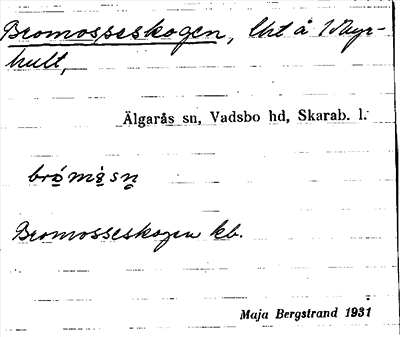 Bromosseskogen, Lht å 1 Myr-
hult,
Älgarås sn, Vadsbo hd, Skarab. l.
Bromosseskogen kb.
Maja Bergstrand 1931